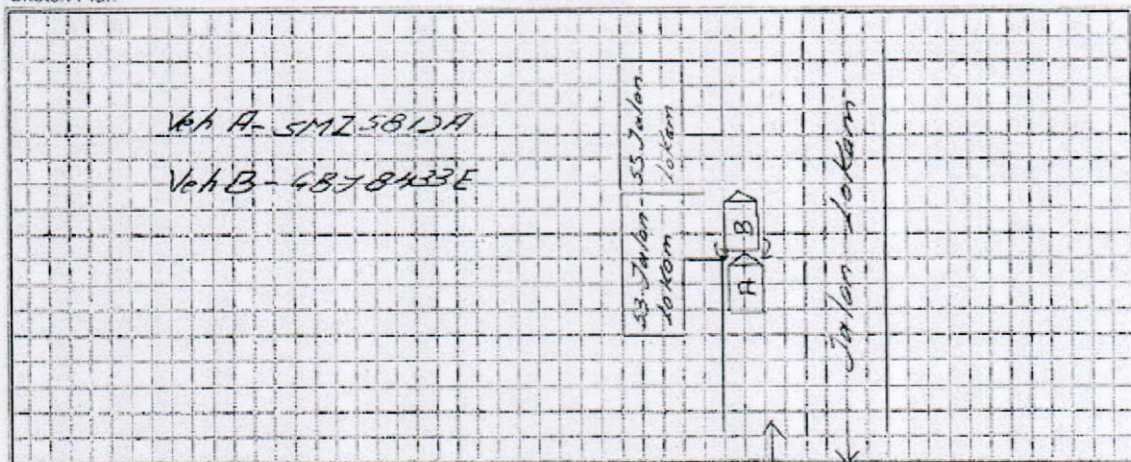 Sketch Plan
Veh A - SMZ5812A
Veh B - GBJ8433E
55 Jalan
Lokam
53 Jalan
Lokam
B
A
Jalan Lokam